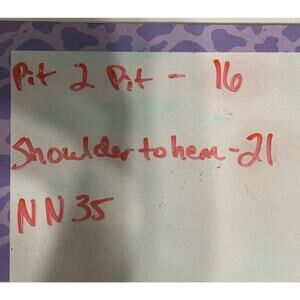 Pit 2 Pit - 16
Shoulder to hem - 21
NN35